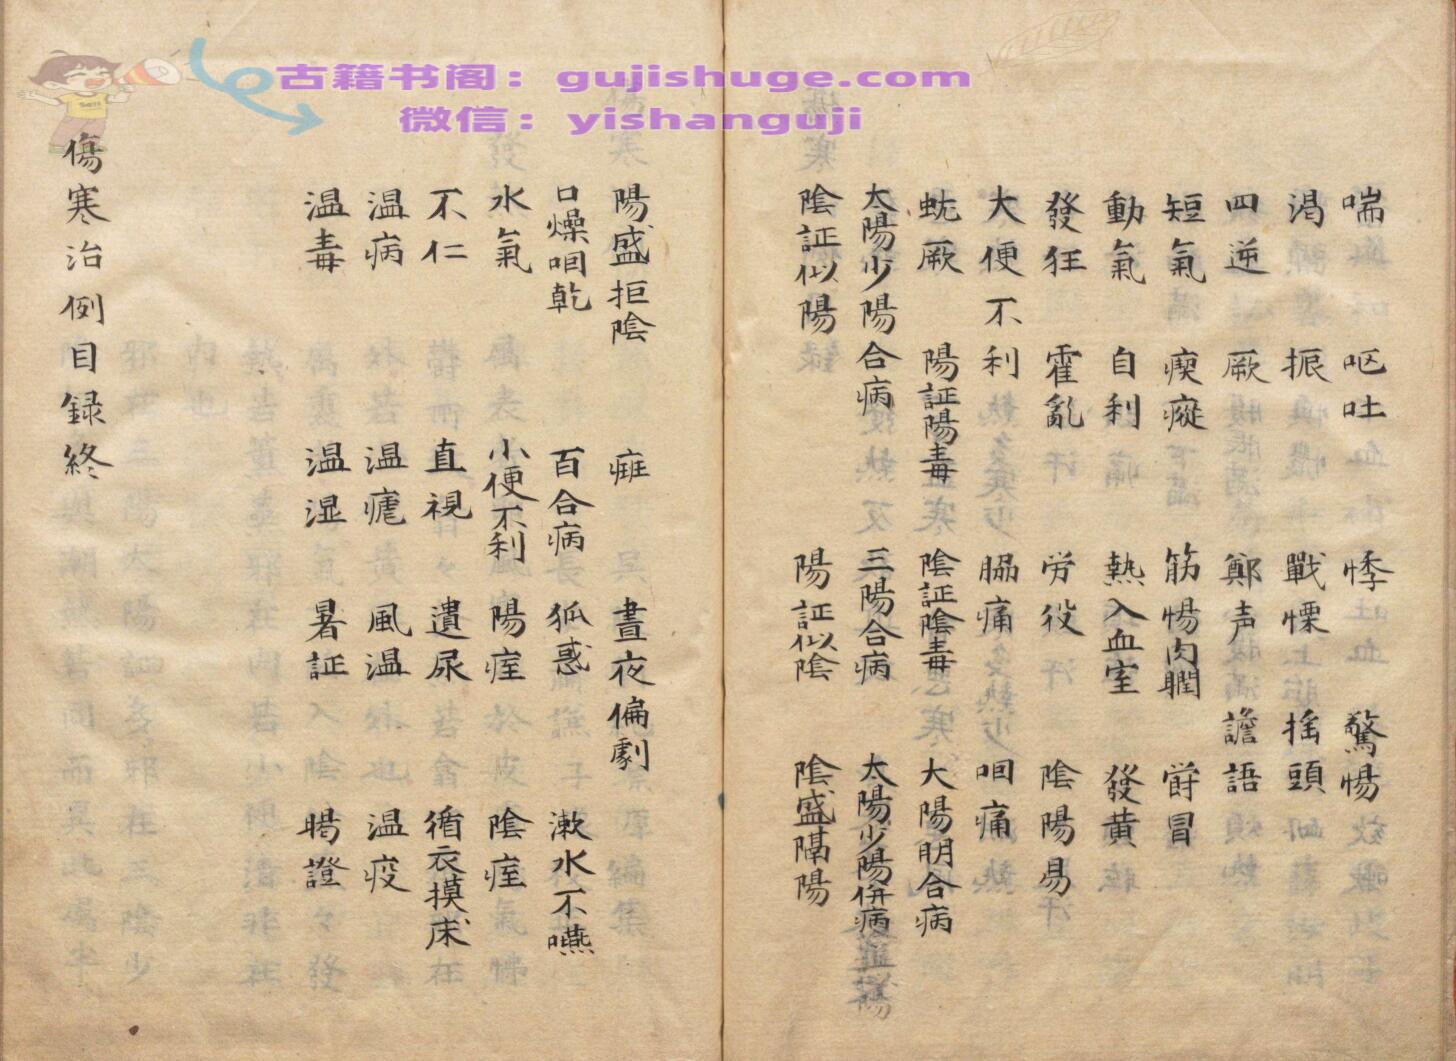 古籍书阁：gujishuge.com
微信：yishanguji
喘 呕吐 悸 驚惕
渴 振 戰慄 揺頭
四逆 厥 鄭声 譫語
短氣 瘈瘲 筋惕肉瞤 欝冒
動氣 自利 熱入血室 發黄
發狂 霍亂 労役 陰陽易
大便不利 腸痛 咽痛
蚘厥 陽証陽毒 陰証陰毒 大陽明合病
太陽少陽合病 三陽合病 太陽少陽併病
陰証似陽 陽証似陰 陰盛隔陽
陽盛拒陰 疟 晝夜偏劇
口燥咽乾 百合病 狐惑 漱水不嚥
水氣 小便不利 陽痓 陰痓
不仁 直視 遺尿 循衣摸床
温病 温瘧 風温 温疫
温毒 温湿 暑証 暍證
傷寒治例目録終